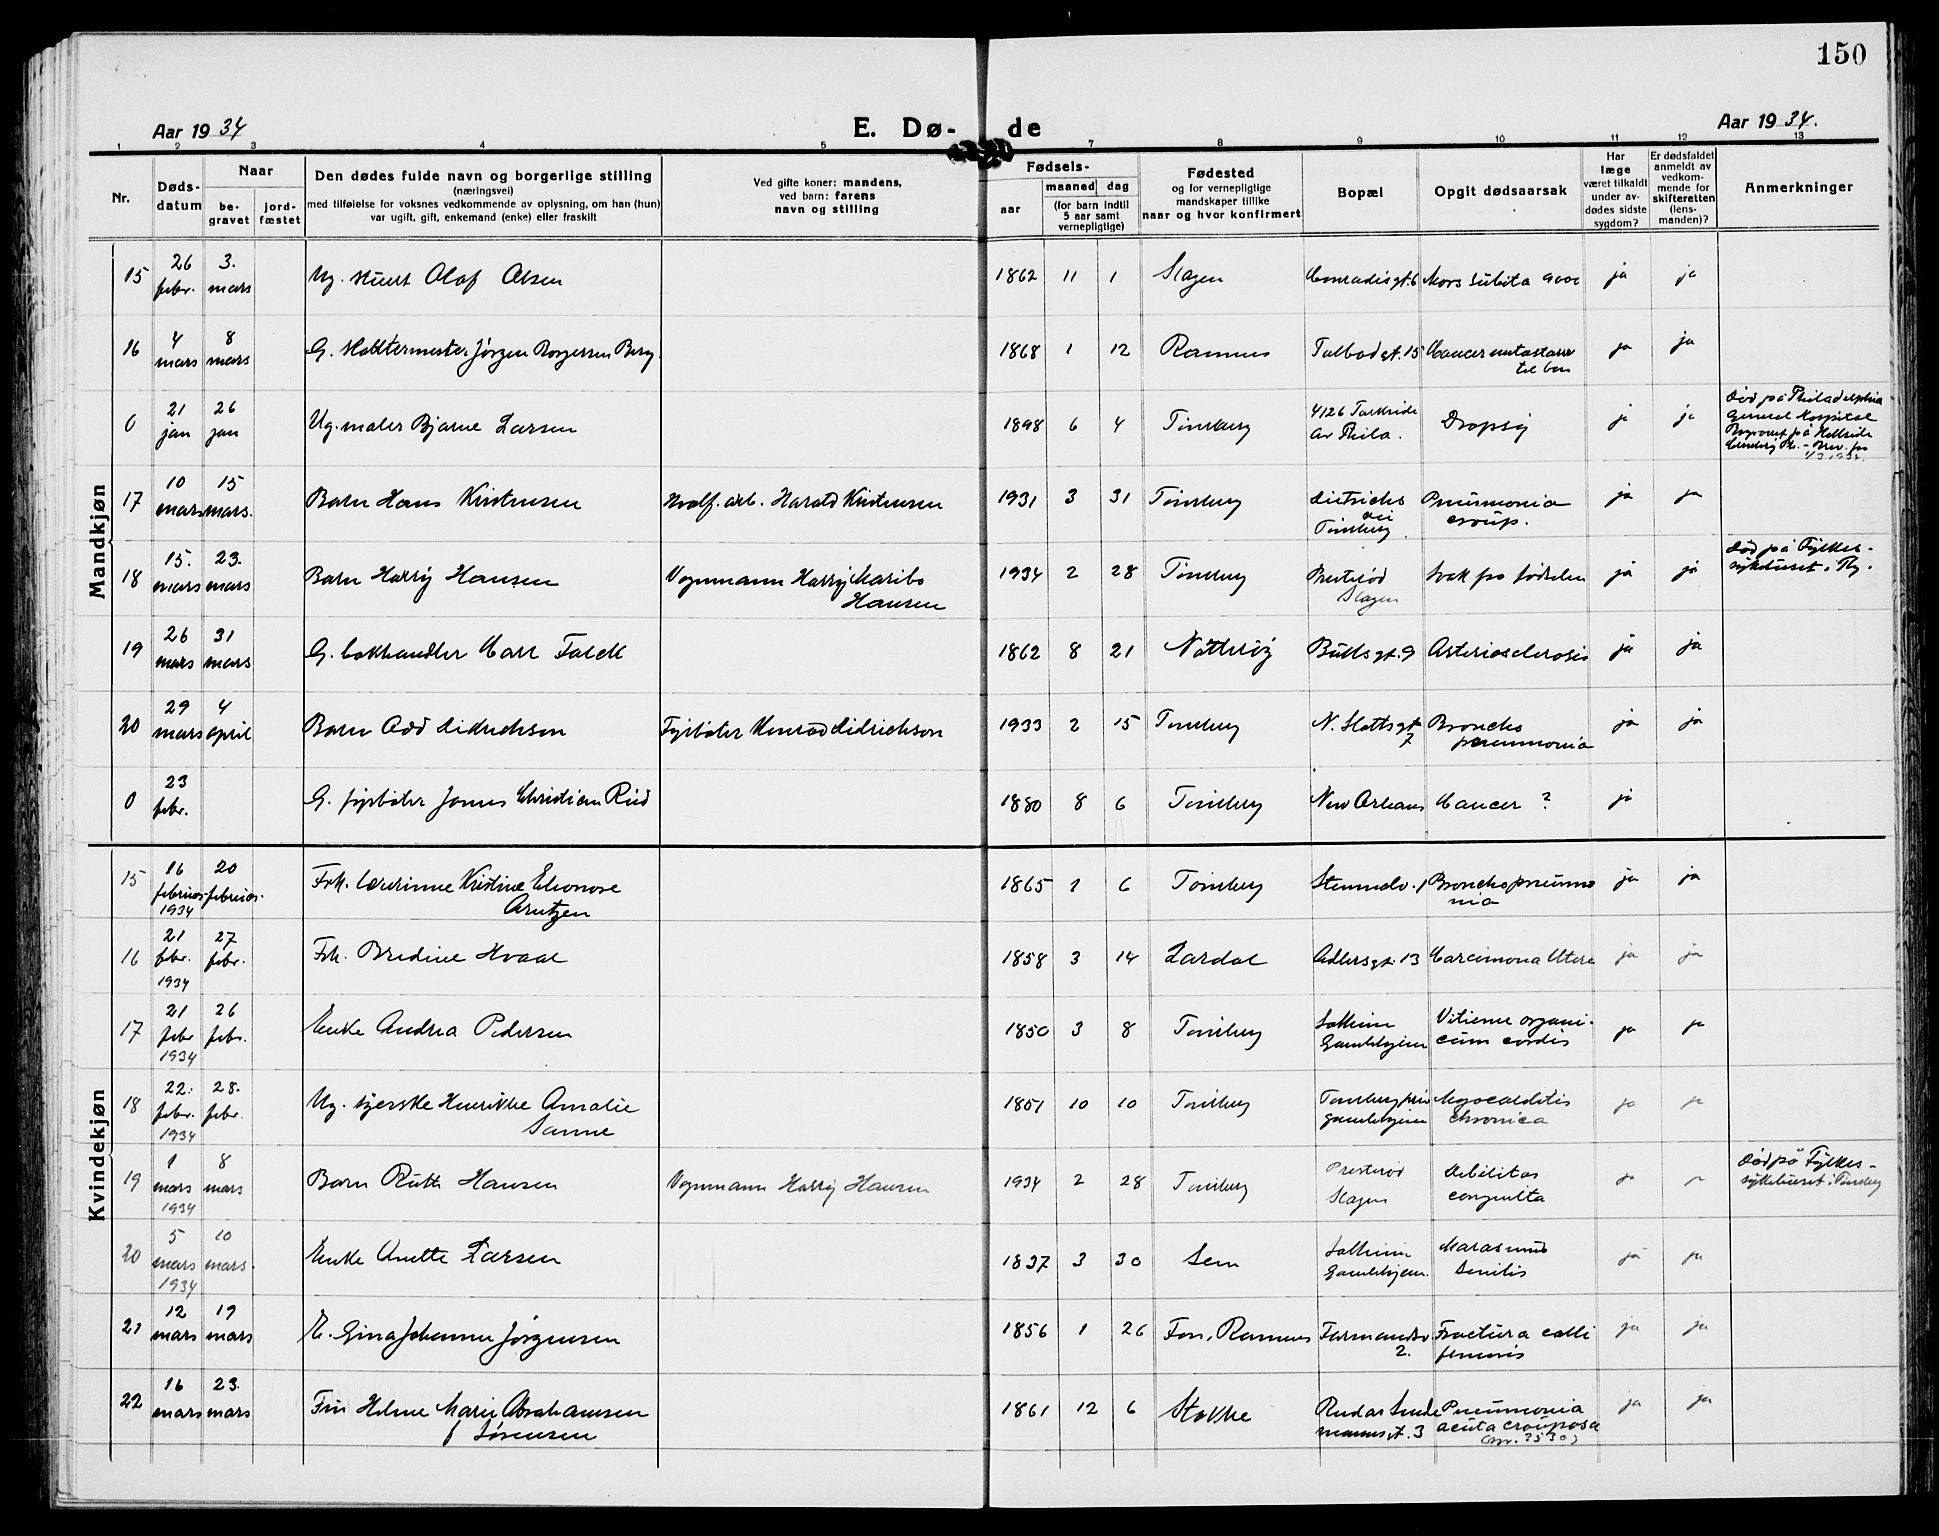 150
Aar 1934
E. Dø- de
Aar 1934.
1 2 3 4 5 7 8 9 10 11 12 13
Nr.
Døds-
datum
Naar
be-
gravet
jord-
fæstet
Den dødes fulde navn og borgerlige stilling
(næringsvei)
med tilføielse for voksnes vedkommende av oplysning, om han (hun)
var ugift, gift, enkemand (enke) eller fraskilt
Ved gifte koner: mandens,
ved barn: farens
navn og stilling
Fødsels-
aar
maaned dag
(for barn indtil
5 aar samt
vernepligtige)
Fødested
og for vernepligtige
mandskaper tillike
naar og hvor konfirmert
Bopæl
Opgit dødsaarsak
Har
læge
været tilkaldt
under av-
dødes sidste
sygdom?
Er dødsfaldet
anmeldt av
vedkom-
mende for
skifteretten
(lens-
manden)?
Anmerkninger
Mandkjøn
15 26 febr. 3. mars Ug. Olaf Olsen 1862 11 1 Slagen Conradisgt. 6 Mors subita ja ja
16 4 mars 8 mars G. Jørgen Borgersen Berg 1868 1 12 Ramnes Tolbodgt. 15 Cancer til ja ja
0 21 jan 26 jan Ug. maler Bjarne Larsen 1898 6 4 Tønsberg 4126 Parkside Av Phila. Dropsy ja ja død på Philadelphia General Hospital
17 10 mars 15 mars. Barn Hans Kristensen Hvalf. arb. Harald Kristensen 1931 3 31 Tønsberg Dietrichs vei Tønsberg. Pneumonia croup. ja ja
18 15. mars 23. mars Barn Harry Hansen Vognmann Harry Maribo Hansen 1934 2 28 Tønsberg Presterød Slagen Svak fra fødselen ja ja død på Fylkes-sykehuset i Tbg.
19 26 mars 31 mars G. bokhandler Carl Falck 1862 8 21 Nøtterøy Bullsgt. 9 Arteriosclerosis ja ja
20 29 mars 4 april Barn Odd Didrichsen Fyrbøter Konrad Didrichsen 1933 2 15 Tønsberg N. Slottsgt 7 Broncho pneumonia ja ja
0 23 febr. G. fyrbøter Jonas Christian Rud 1880 8 6 Tønsberg New Orleans Cancer ? ja
Kvindekjøn
15 16 februar 1934 20 februar. Frk. lærerinne Kristine Eleonore Arntzen 1865 1 6 Tønsberg Broncho pneumonia ja ja
16 21 febr. 1934 27 febr. Frk. Bredine Hvaal 1858 3 14 Lardal Adlersgt. 13 Carcinoma Uteri ja ja
17 21 febr 1934 26 febr. Enke Andrea Pedersen 1850 3 8 Tønsberg Solheim Gamlehjem Vitium organicum cordis ja ja
18 22. febr. 1934 28. febr. Ug. syerske Henrikke Amalie Sanne 1851 10 10 Tønsberg Tønsberg gamlehjem Myocarditis chronica ja ja
19 1 mars 1934 8 mars Barn Ruth Hansen Vognmann Harry Hansen 1934 2 28 Tønsberg Presterød Slagen Debilitas congenita ja ja død på Fylkes-sykehuset i Tønsberg
20 5 mars 1934 10 mars. Enke Anette Larsen 1837 3 30 Sem Solheim Gamlehjem. Marasmus senilis ja ja
21 12 mars 19 mars E. Gina Johanne Jørgensen 1856 1 26 Fon, Ramnes Farmandsv. 2. Fractura colli femoris ja ja
22 16 mars 23. mars Fru Helene Marie Abrahamsen f Sørensen 1861 12 6 Stokke 3 Pneumonia acuta crouposa ja ja